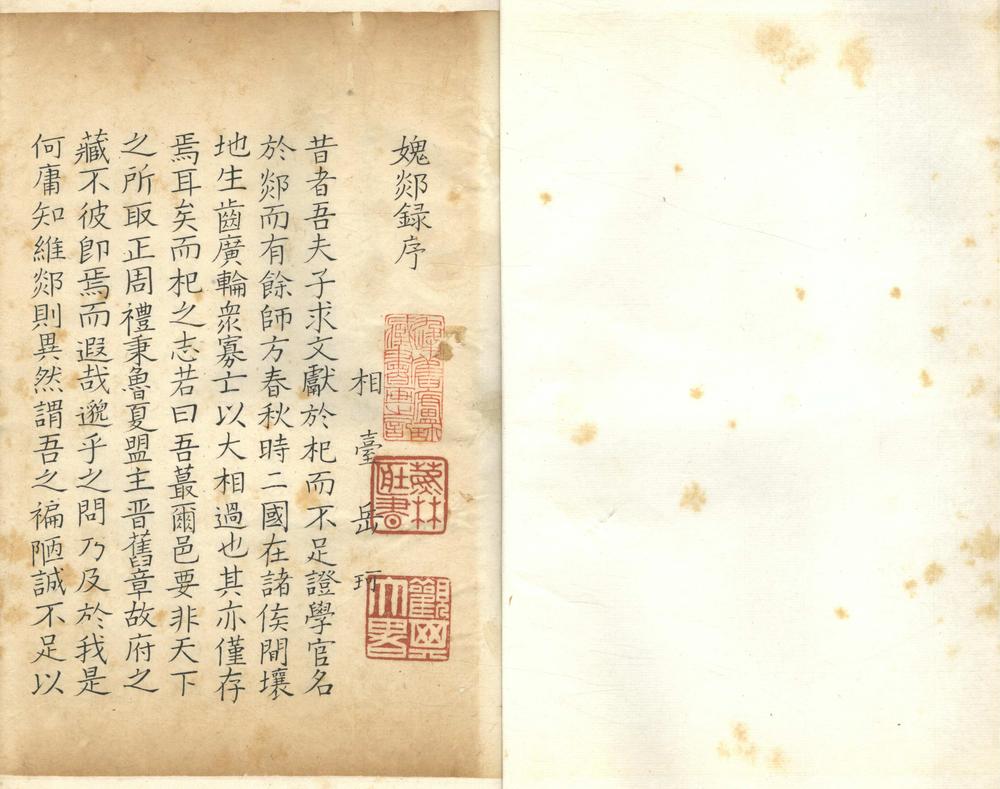 媿郯録序
相臺岳珂
昔者吾夫子求文獻於杞而不足證學官名
於郯而有餘師方春秋時二國在諸侯間壤
地生齒廣輪衆寡士以大相過也其亦僅存
焉耳矣而杞之志若曰吾蕞爾邑要非天下
之所取正周禮秉魯夏盟主晋舊章故府之
藏不彼卽焉而遐哉邈乎之問乃及於我是
何庸知維郯則異然謂吾之褊陋誠不足以
蓺林
藏書
觀其
大略